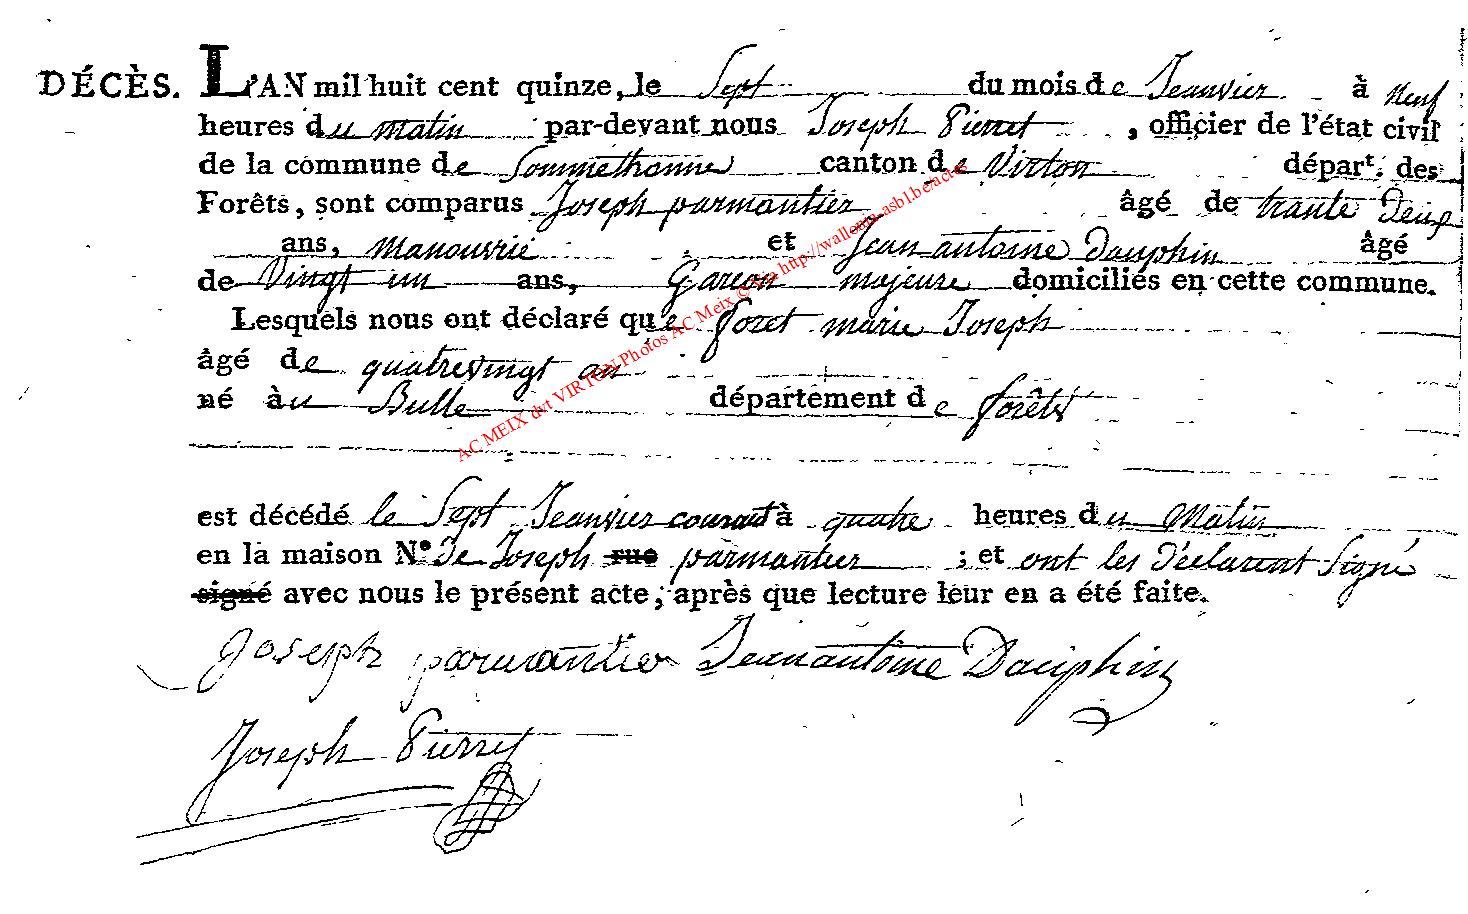 DÉCÈS. L'AN mil huit cent quinze, le Sept du mois de Jeanvier à Neuf
heures du matin par-devant nous Joseph Pierret, officier de l'état civil
de la commune de Sommethonne canton de Virton départ. des
Forêts, sont comparus Joseph parmantier âgé de trante Deux
ans, manouvrié et Jean antoine Dauphin âgé
de Vingt un ans, Garçon majeure domiciliés en cette commune.
Lesquels nous ont déclaré que foret marie Joseph
âgé de quatrevingt an
né àu Bulle département de forêts
est décédé le Sept Jeanvier courant à quatre heures du Matin
en la maison N.° de Joseph rue parmantier ; et ont les Déclarent Signé
signé avec nous le présent acte, après que lecture leur en a été faite.
Joseph parmantier Jeanantoine Dauphin
Joseph Pierret
AC MEIX dvt VIRTON Photos AC Meix http://wallonia-asbl.be/actes